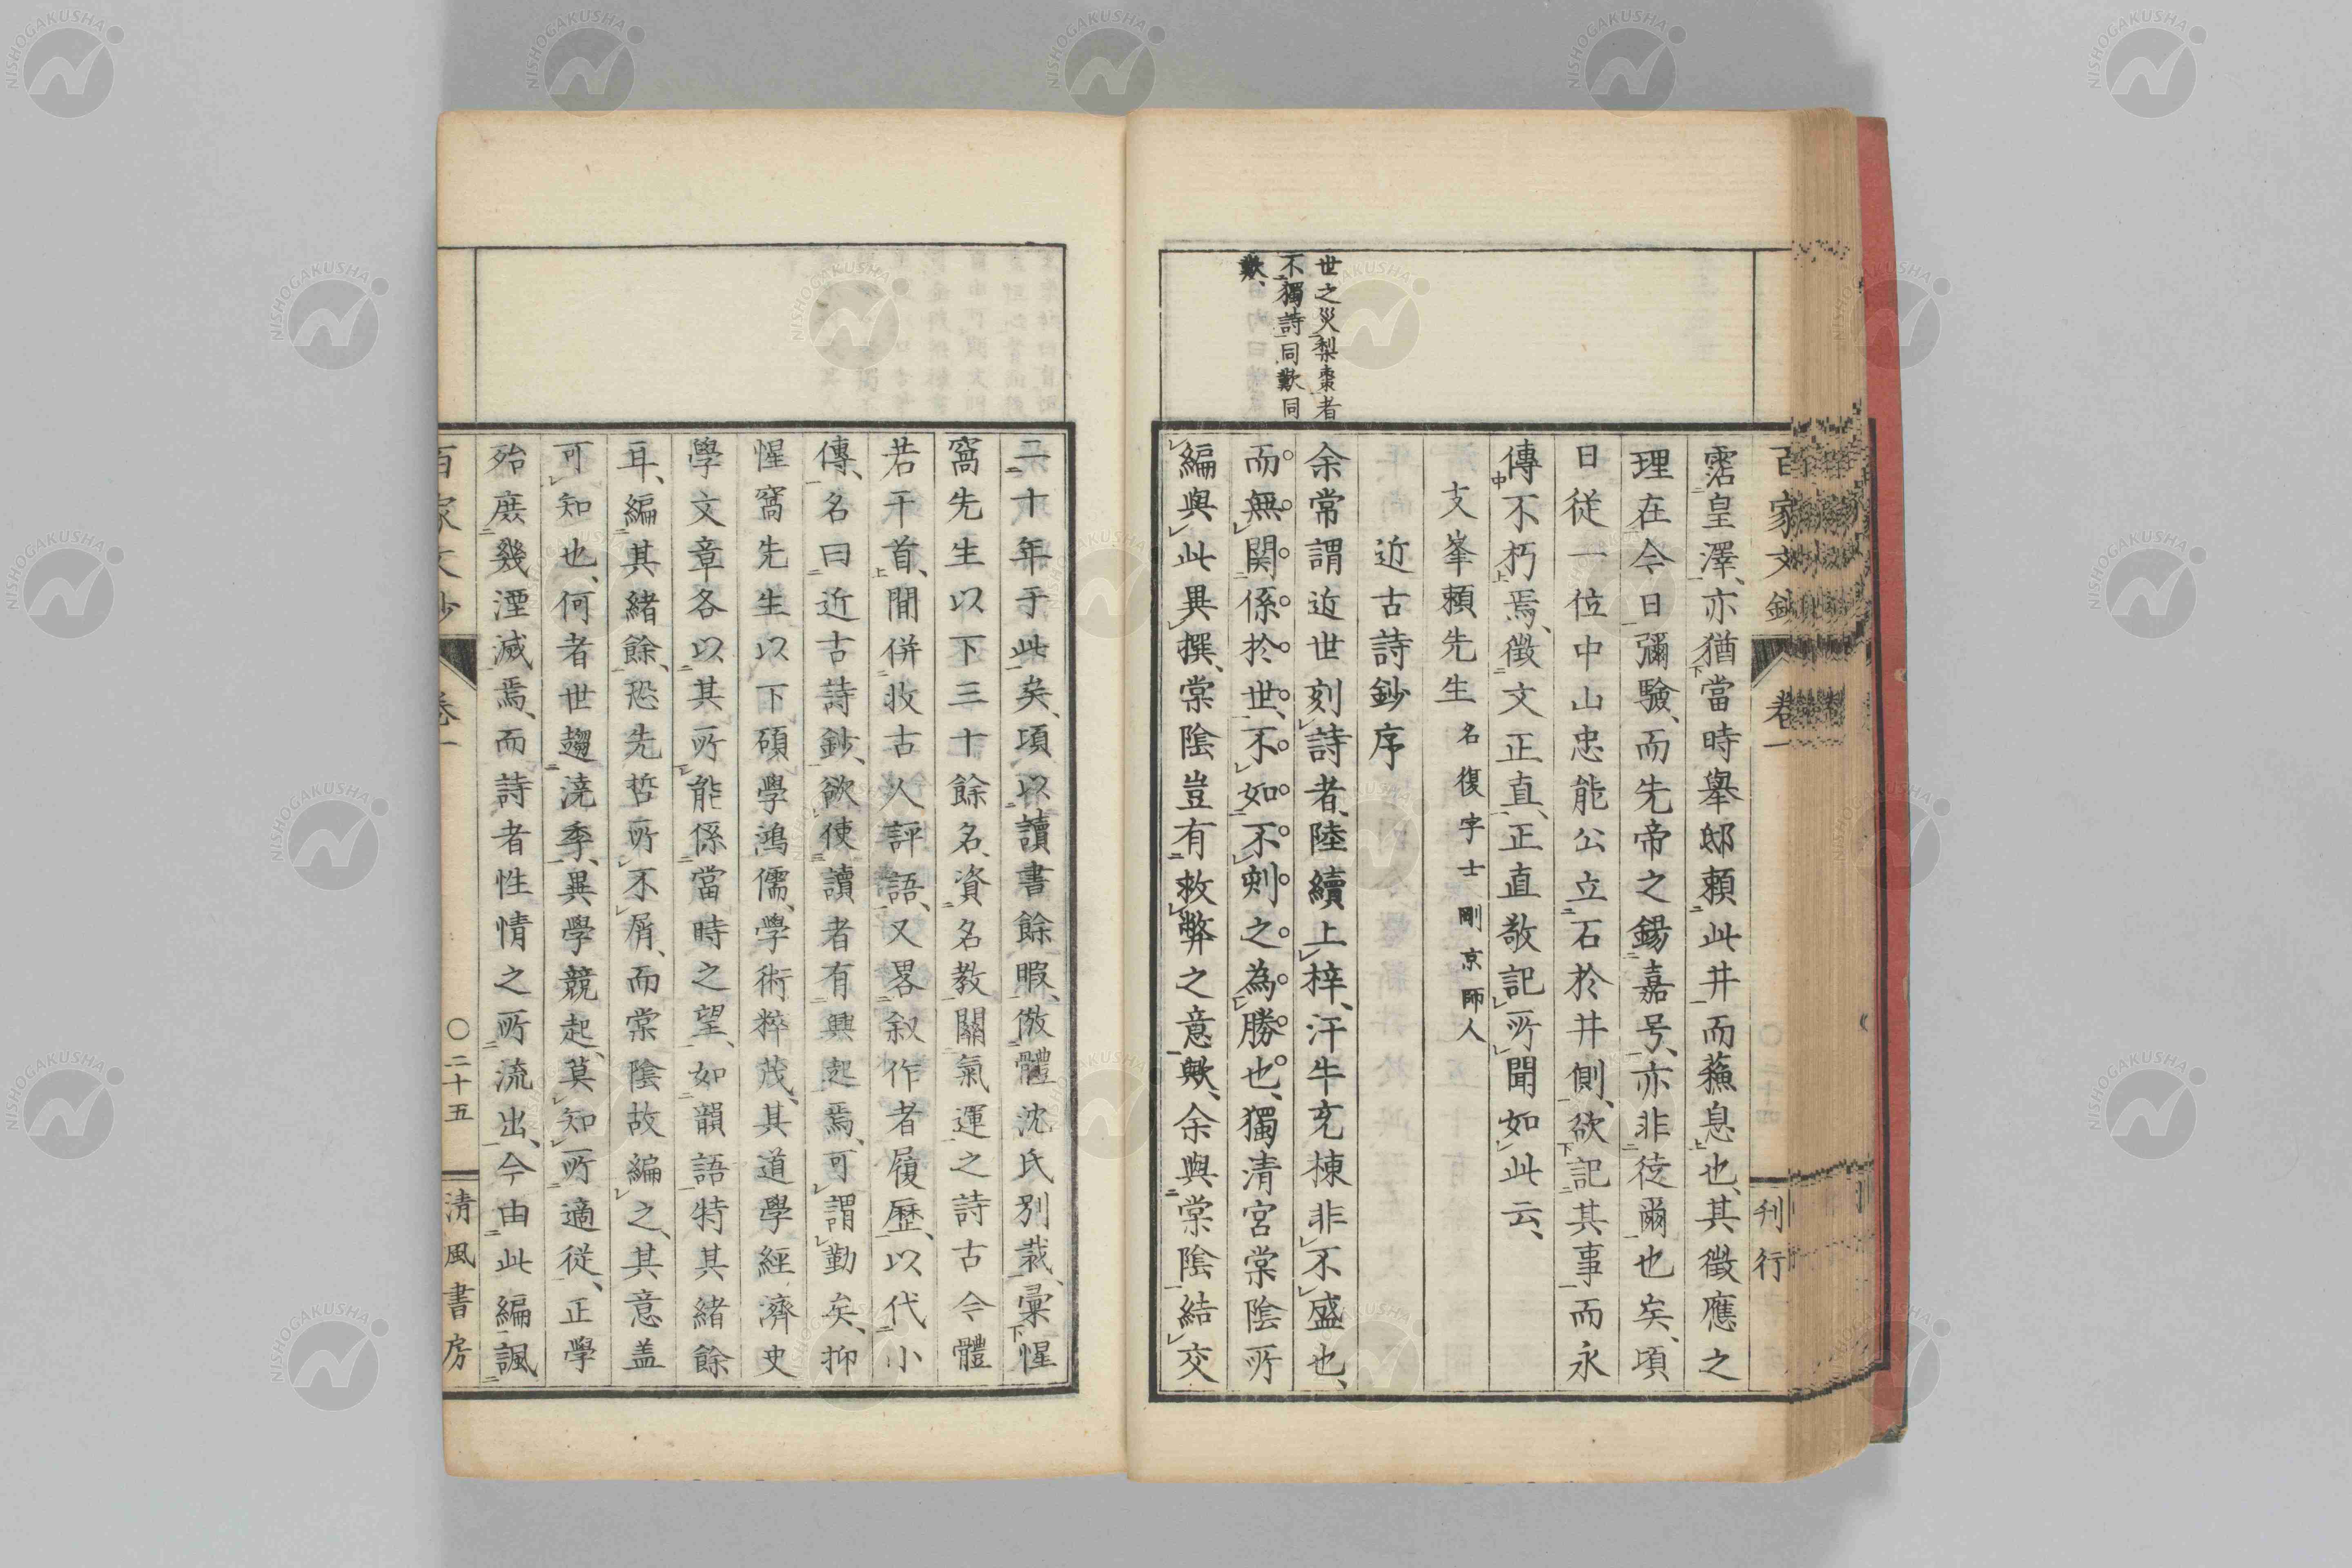 百家文鈔 卷一 刊行
霑皇澤、亦猶當時擧邸頼此井而蘓息也、其徴應之
理在今日彌驗、而先帝之錫嘉号、亦非徒爾也矣、頃
日従一位中山忠能公立石於井側、欲記其事而永
傳不朽焉、徴文正直、正直敬記所聞如此云、
支峯頼先生 名復字士剛京師人
近古詩鈔序
世之災梨棗者
不獨詩同歎同
歎、
余常謂近世刻詩者、陸續上梓、汗牛充棟非不盛也、
而無関係於世、不如不刻之為勝也、獨清宮棠陰所
編與此異撰、棠陰豈有救弊之意歟、余與棠陰結交
二十年于此矣、項以讀書餘暇、倣體沈氏別裁、彙惺
窩先生以下三十餘名、資名教關氣運之詩古今體
若干首、間併收古人評語、又畧叙作者履歷、以代小
傳、名曰近古詩鈔、欲使讀者有興起焉、可謂勤矣、抑
惺窩先生以下碩學鴻儒、學術粹茂、其道學經濟史
學文章各以其所能係當時之望、如韻語特其緒餘
耳、編其緒餘、恐先哲所不屑、而棠陰故編之、其意盖
可知也、何者世趨澆季、異學競起、莫知所適從、正學
殆廢幾湮滅焉、而詩者性情之所流出、今由此編諷
百家文鈔 卷一 〇二十五 清風書房
NISHOGAKUSHA